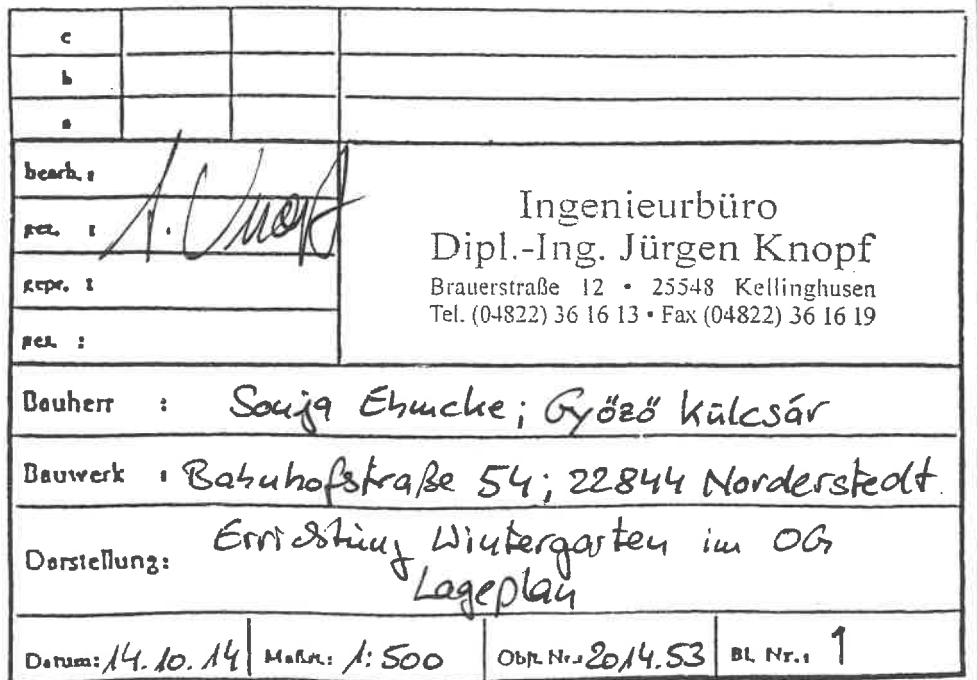 c
b
a
bearb. :
gez. :
gepr. :
ges. :
Ingenieurbüro
Dipl.-Ing. Jürgen Knopf
Brauerstraße 12 • 25548 Kellinghusen
Tel. (04822) 36 16 13 • Fax (04822) 36 16 19
Bauherr : Sonja Ehmcke; Győző Kulcsár
Bauwerk : Bahnhofstraße 54; 22844 Norderstedt
Darstellung: Errichtung Wintergarten im OG
Lageplan
Datum: 14.10.14 Maßst.: 1:500 Objk. Nr.: 2014.53 Bl. Nr.: 1